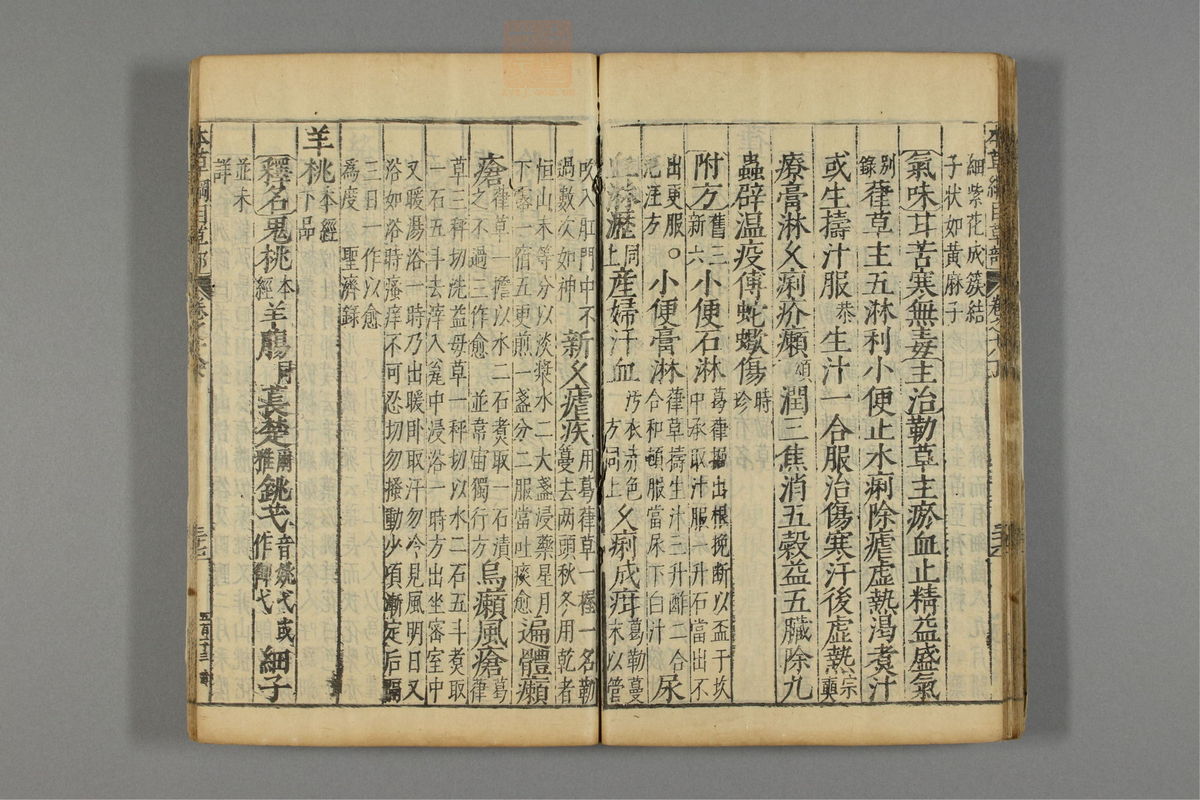 細紫花成簇結
子狀如黃麻子
氣味甘苦寒無毒主治勒草主瘀血止精益盛氣
別錄葎草主五淋利小便止水痢除瘧虛熱渴煮汁
或生擣汁服恭生汁一合服治傷寒汗後虛熱宗奭
療膏淋久痢疥癩頌潤三焦消五穀益五臟除九
蟲辟温疫傅蛇蠍傷時珍
附方舊三新六小便石淋葛葎掘出根挽斷以盃于坎
中承取汁服一升石當出不
出更服。小便膏淋葎草擣生汁三升酢二合
合和頓服當尿下白汁尿
血淋瀝同上產婦汗血汚衣赤色方同上久痢成疳葛勒蔓末以管
吹入肛門中不
過數次如神新久瘧疾用葛葎草一握一名勒
蔓去两頭秋冬用乾者
恒山末等分以淡漿水二大盞浸藥星月
下露一宿五更煎一盞分二服當吐痰愈遍體癩
瘡葎草一擔以水二石煮取一石漬
之不過三作愈並韋宙獨行方烏癩風瘡葛葎
草三秤切洗益母草一秤切以水二石五斗煮取
一石五斗去滓入瓮中浸浴一時方出坐密室中
又暖湯浴一時乃出暖卧取汗勿令見風明日又
浴如浴時瘙痒不可忍切勿搔動少頃漸定后隔
三日一作以愈
爲度聖濟錄
羊桃本經下品
釋名鬼桃本經羊腸同萇楚爾雅銚芅音姚弋或作御弋細子
並未
詳